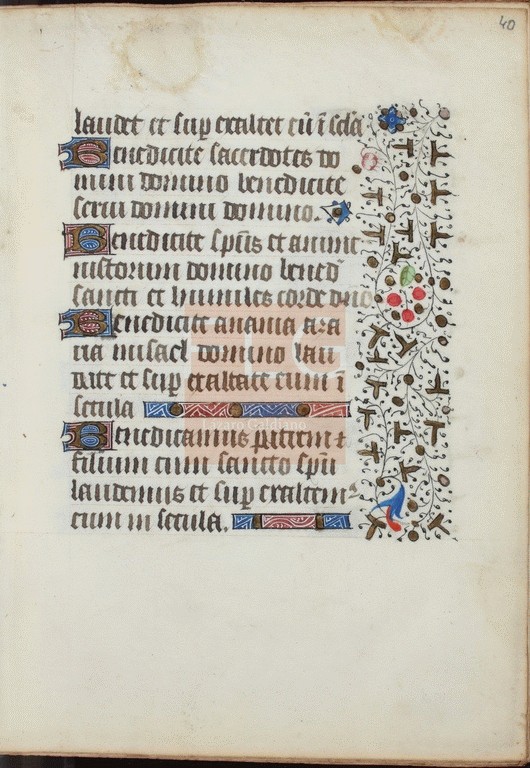 40
laudet et sup exaltet eū ī scla
Benedicite sacerdotes do
mini domino benedicite
serui domini domino.
Benedicite spūs et anime
iustorum domino bened
sancti et humiles corde dno
Benedicite anania aza
ria misael domino lau
date et sup exaltate eum ī
secula
Benedicamus patrem t
filium cum sancto spū
laudemus et sup exaltem
eum in secula.
FLG
Lázaro Galdiano